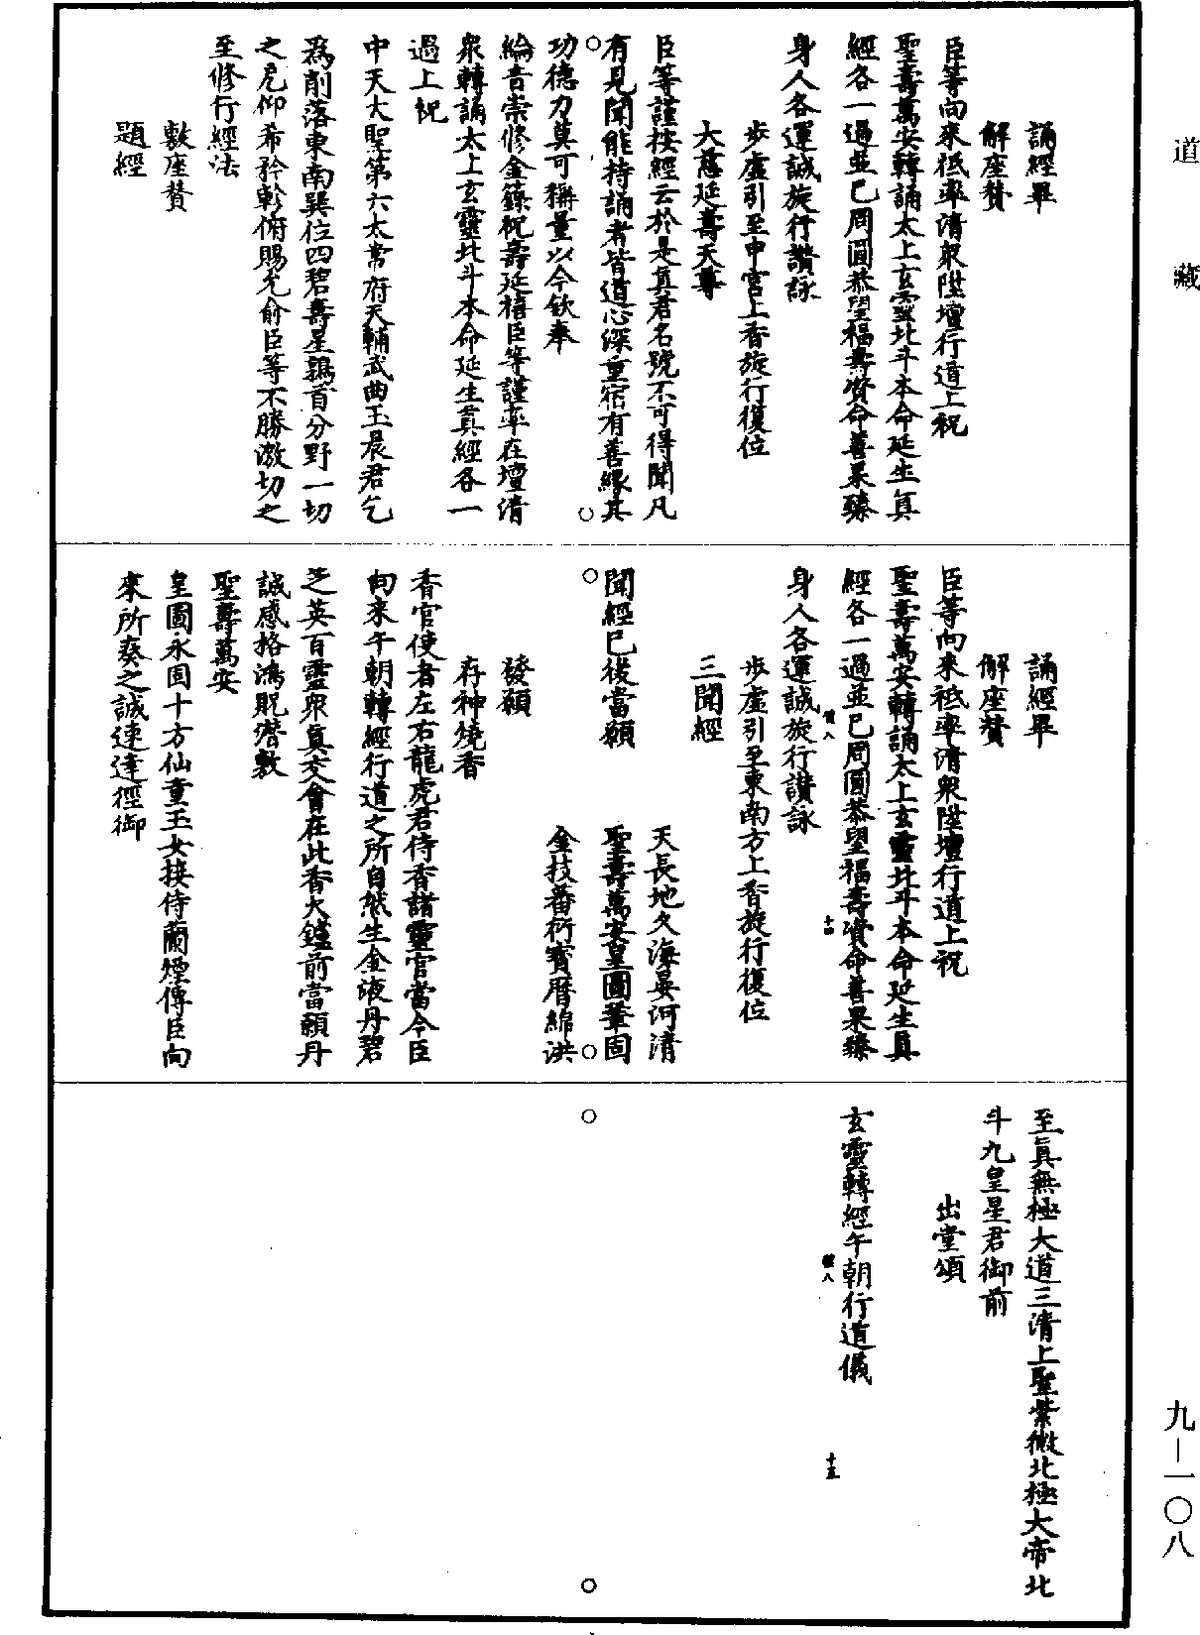 道藏
誦經畢
解座贊
臣等向來祗率清衆陞壇行道上祝
聖壽萬安轉誦太上玄靈北斗本命延生眞
經各一過並已周圓恭望福壽資命善果臻
身人各運誠旋行讚詠
步虛引至中宮上香旋行復位
大慈延壽天尊
臣等謹按經云於是眞君名號不可得聞凡
有見聞能持誦者皆道心深重宿有善緣其
功德力莫可稱量以今欽奉
綸音崇修金籙祝壽延禧臣等謹率在壇清
衆轉誦太上玄靈北斗本命延生眞經各一
過上祝
中天大聖第六太常府天輔武曲玉晨君乞
爲削落東南巽位四碧壽星鶉首分野一切
之厄仰希矜軫俯賜允俞臣等不勝激切之
至修行經法
敷座贊
題經
誦經畢
解座贊
臣等向來祗率清衆陞壇行道上祝
聖壽萬安轉誦太上玄靈北斗本命延生眞
經各一過並已周圓恭望福壽資命善果臻
身人各運誠旋行讚詠
步虛引至東南方上香旋行復位
三聞經
天長地久海晏河清
聞經已後當願 聖壽萬安皇圖鞏固
金技蕃衍寶曆綿洪
發願
存神燒香
香官使者左右龍虎君侍香諸靈官當令臣
向來午朝轉經行道之所自然生金液丹碧
芝英百靈衆眞交會在此香火鑪前當願丹
誠感格鴻貺潛敷
聖壽萬安
皇圖永固十方仙童玉女接侍蘭煙傳臣向
來所奏之誠速達徑御
至眞無極大道三清上聖紫微北極大帝北
斗九皇星君御前
出堂頌
玄靈轉經午朝行道儀
十四
十五
九一一〇八